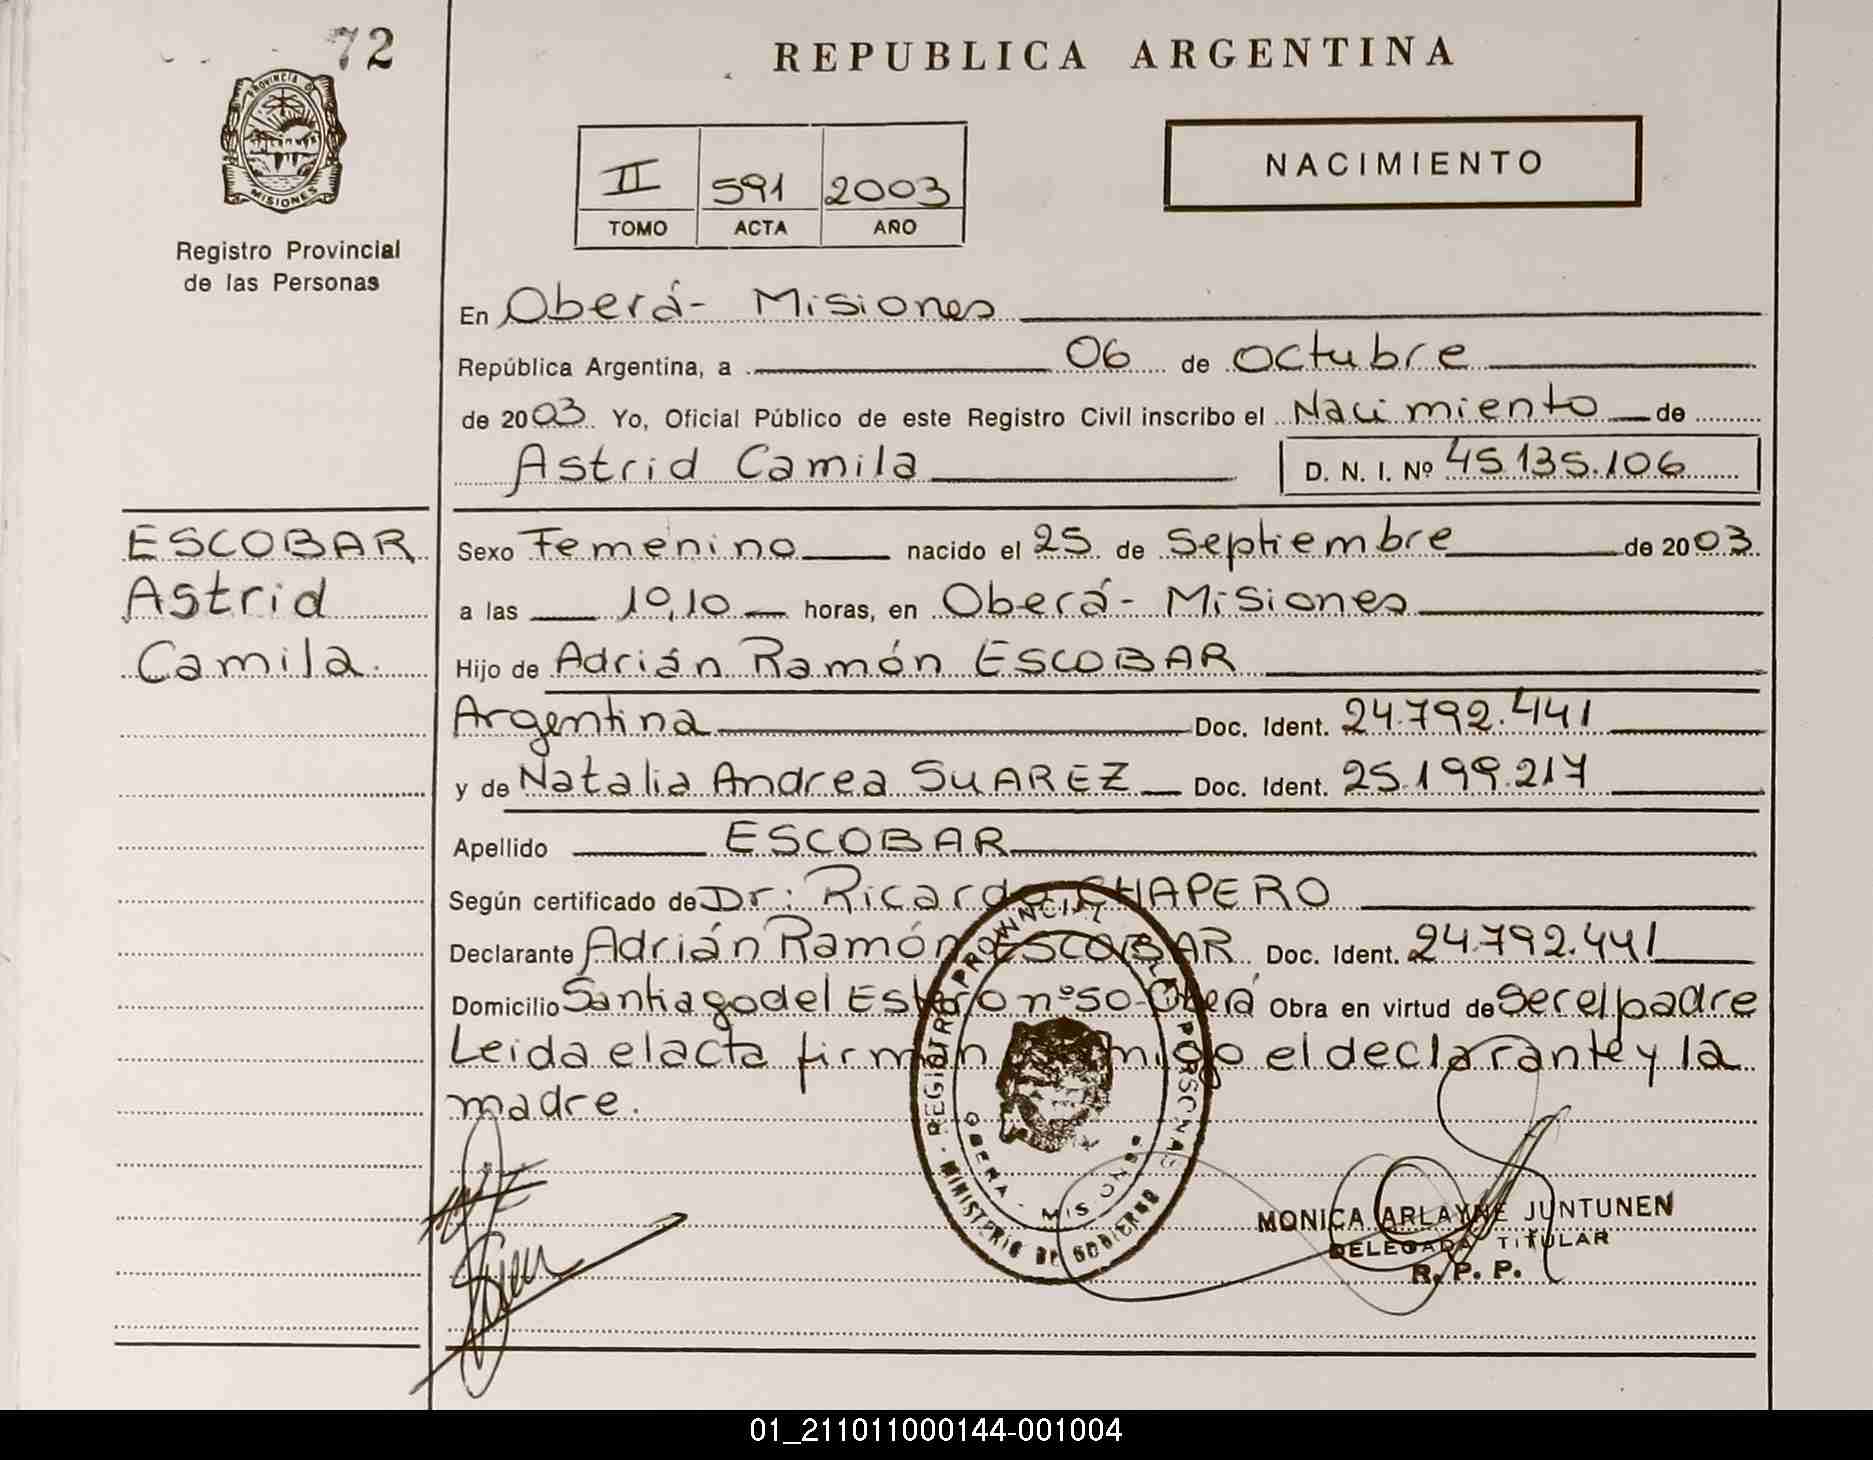 72
REPUBLICA ARGENTINA
PROVINCIA DE
MISIONES
Registro Provincial
de las Personas
II 591 2003
TOMO ACTA AÑO
NACIMIENTO
En Oberá- Misiones
República Argentina, a 06 de octubre
de 2003 Yo, Oficial Público de este Registro Civil inscribo el Nacimiento de
Astrid Camila D. N. I. Nº 45.135.106
ESCOBAR
Astrid
Camila.
Sexo Femenino nacido el 25 de Septiembre de 2003
a las 10,10 horas, en Oberá- Misiones
Hijo de Adrián Ramón ESCOBAR
Argentina Doc. Ident. 24.792.441
y de Natalia Andrea SUAREZ Doc. Ident. 25.199.217
Apellido ESCOBAR
Según certificado de Dr: Ricardo CHAPERO
Declarante Adrián Ramón ESCOBAR Doc. Ident. 24.792.441
Domicilio Santiago del Estero nº 50-Oberá Obra en virtud de ser el padre
Leida el acta firman conmigo el declarante y la
madre.
REGISTRO PROVINCIAL PERSONAS
OBERA - MISIONES
MINISTERIO DE GOBIERNO
MONICA ARLAYNE JUNTUNEN
DELEGADA TITULAR
R. P. P.
01_211011000144-001004